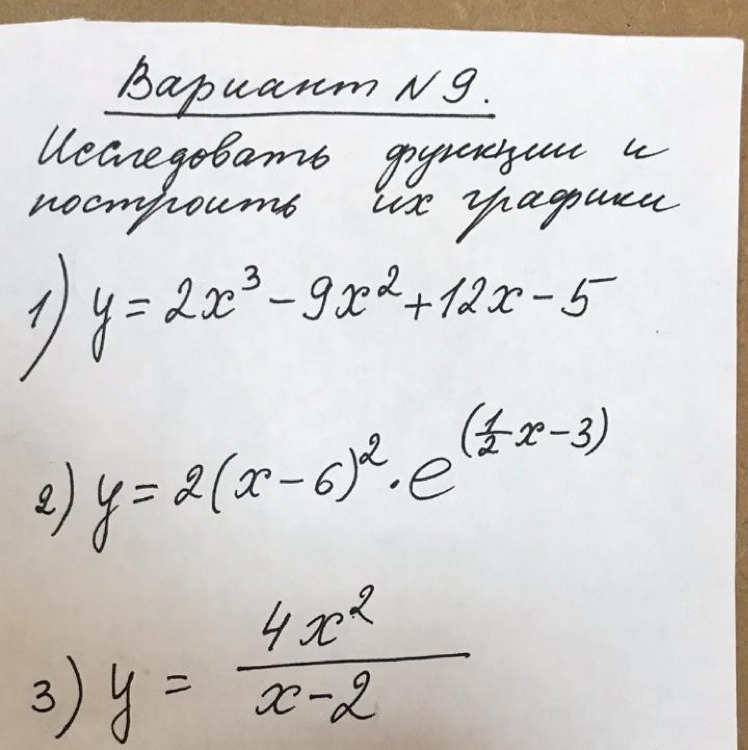 Вариант N 9.
Исследовать функции и
построить их графики
1) y = 2x³ - 9x² + 12x - 5
2) y = 2(x - 6)² · e^(½x - 3)
3) y = 4x² / (x - 2)